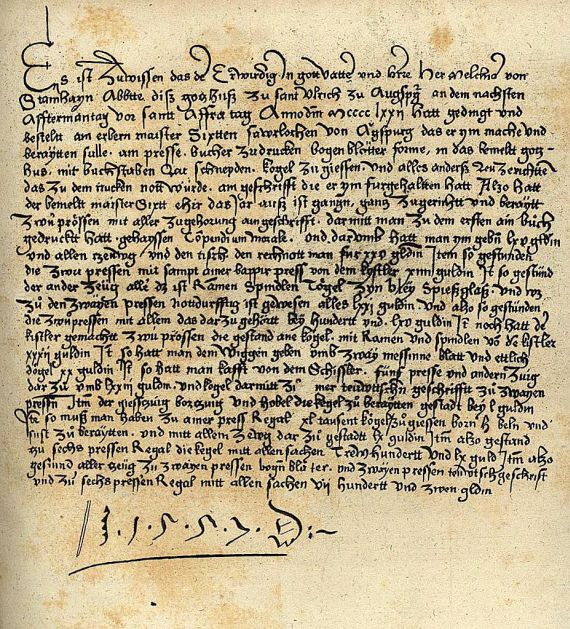 Es ist Zuwissen das de Erwirdig In gott vatter und herre Her Melchior von
Stamhayn Abbte diß gotzhuß Zu sant Ulrich Zu Augspurg an dem nachsten
Afftermantag vor sant Affra tag Annodm Mcccc lxxii Hatt gedingt und
bestelt am erbern maister Sixtten saurlochen von Augspurg das er ym mache und
beraytten sulle. am presse. bucher Zudrucken bogen bletter forme, in das bemelt gotz-
hus. mit buchstaben schneyden. kogel Zu giessen und alles anderß Zerichtten
das Zu dem trucken nott wurde. am geschrifft die er ym furgehaltten hatt Also hatt
der bemelt maister Sixtt eher das Jar auß ist gangn, ganz Zugericht und beraytt
Zwu prössen mit aller Zugehorung am geschrifft. dar mitt man Zu dem ersten ain buch
gedruckt hatt. gehayssen Compendium morale. und dar umb hatt man ym gebn lxv gldin
und allen Zeug, und den tisch. den rechnott man fur xxv gldin Item so gestunden
die Zwu pressen mit sampt ainer bappir press von dem kystler xiiii guldin It so gestund
der ander Zeug alle ist Ramen Spindlen Tögel Zyn bley Spießglaß und wz
Zu den Zwayen pressen nottdurfftig ist gewesen alles lxxi guldin und also so gestunden
die Zwu pressen mit allem das dar Zu gehört bey hundertt und lxv guldin It noch hatt de
kistler gemachtt Zwu prössen. die gestand ane kogel. mit Ramen und spindlen vo de kistler
xxxii guldin It so hatt man dem Wiggen geben umb Zway messinne blatt und ettlich
dögel xx guldin It so hatt man kafft von dem Schissler. funf presse und andern Zuig
dar Zu umb lxxii guldin. und kogel darmitt Zu mer geschrifft Zu Zwayen
pressn Itm der giesszuig borczuig und hobel die kogel Zu beraytten gestadt bey l guldin
It so muß man haben Zu ainer press Regal xl tausent kögel Zu giessen born beln und
sust Zu beraytten. und mitt allem Zewg dar Zu gestadt lx guldin Itm also gestand
Zu sechs pressen Regal die kegel mitt allen sachen Trew hundertt und lx guld Itm also
gestund aller Zeug Zu Zwayen pressen bogn bletter. und Zwayen pressen geschrift
und Zu sechs pressen Regal mitt allen sachen vii hundertt und Zwen gldin